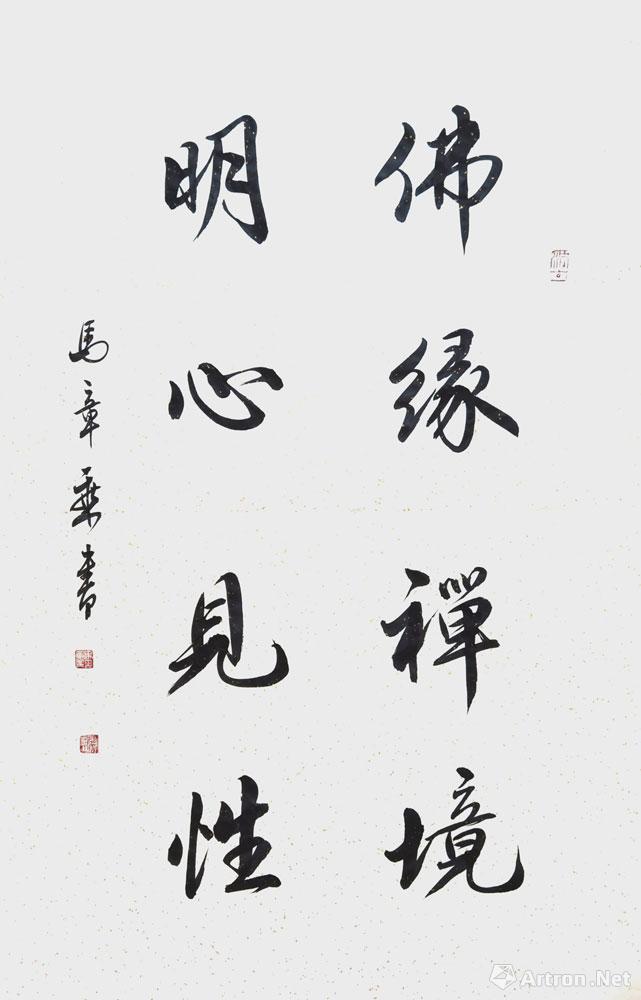 佛緣禪境
明心見性
馬章乘書
Artron.Net